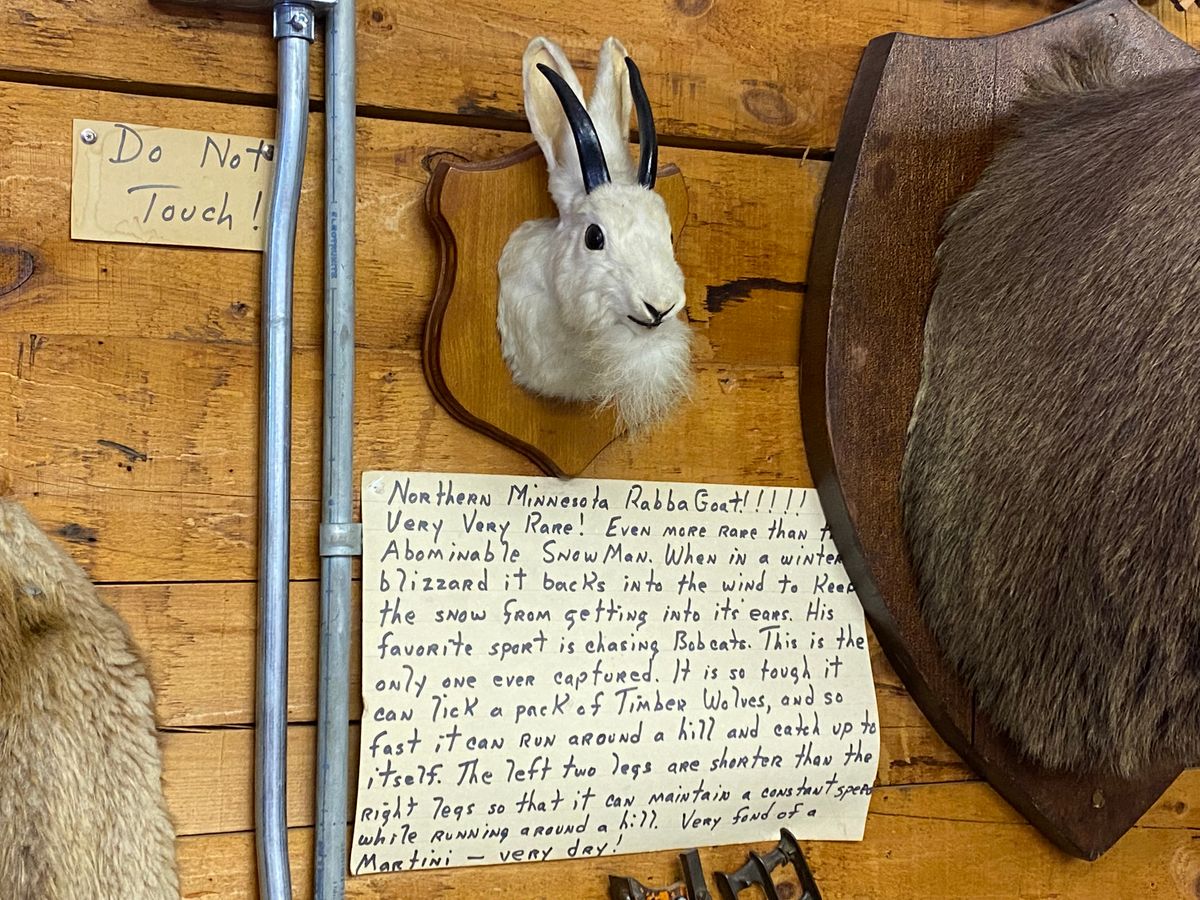 Do Not
Touch!
Northern Minnesota RabbaGoat!!!!!
Very Very Rare! Even more rare than
Abominable SnowMan. When in a winter
blizzard it backs into the wind to Keep
the snow from getting into its' ears. His
favorite sport is chasing Bobcats. This is the
only one ever captured. It is so tough it
can lick a pack of Timber Wolves, and so
fast it can run around a hill and catch up to
itself. The left two legs are shorter than the
right legs so that it can maintain a constant speed
while running around a hill. Very fond of a
Martini – very dry!